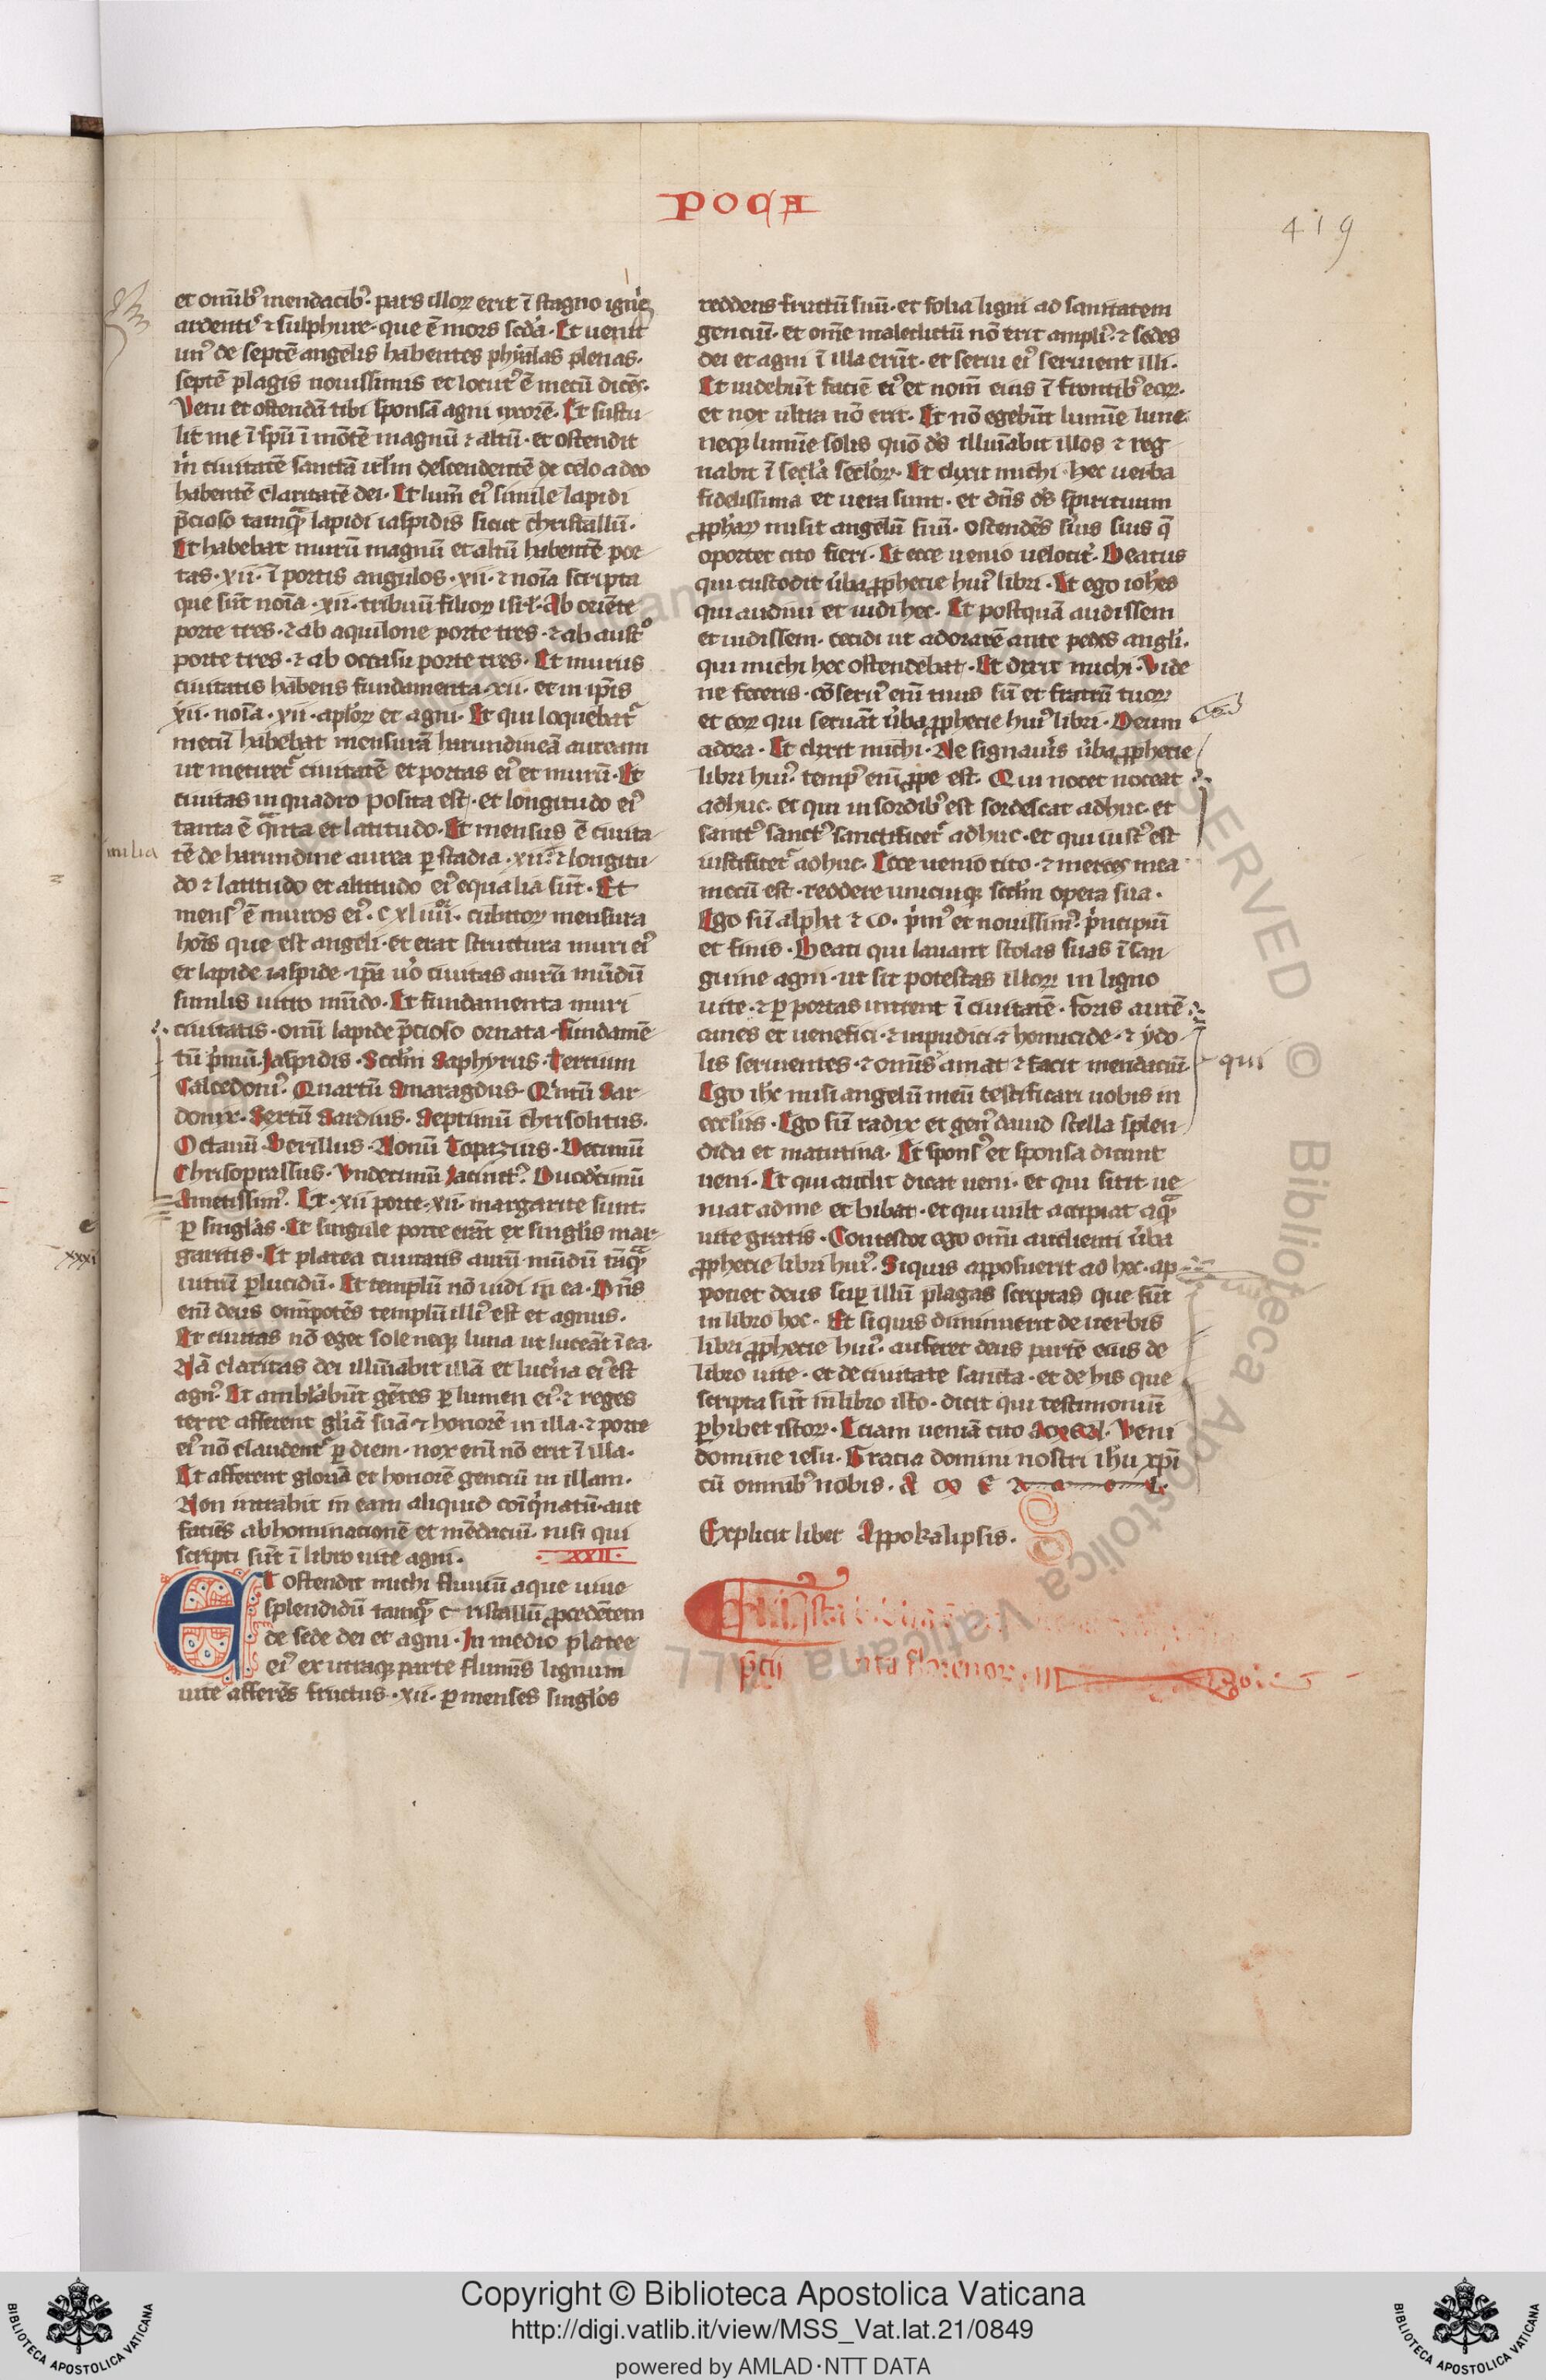 POCA
419
et omĩbꝰ mendacibꝰ. pars illoꝝ erit ĩ stagno igne
ardenti ⁊ sulphure. que ẽ mors scďa. Et uenit
unꝰ de septẽ angelis habentes phyalas plenas.
septẽ plagis nouissimis et locutꝰ ẽ mecũ dicẽs.
Veni et ostendã tibi sponsã agni uxorẽ. Et sustu
lit me ĩ spũ ĩ mõtẽ magnũ ⁊ altũ. et ostendit
m̉ ciuitatẽ sanctã irl̃m descendentẽ de celo a deo
habentẽ claritatẽ dei. Et lum̃ eiꝰ simile lapidi
p̃cioso tamqᷓ lapidi iaspidis sicut christallũ.
Et habebat murũ magnũ et altũ habentẽ por
tas .xii. ĩ portis angulos .xii. ⁊ noĩa scripta
que sũt noĩa .xii. tribuũ filioꝝ isrl̃. Ab oriẽte
porte tres. ⁊ ab aquilone porte tres. ⁊ ab austᵒ
porte tres. ⁊ ab occasu porte tres. Et murus
ciuitatis habens fundamenta .xii. et in ip̃is
xii. noĩa .xii. apl̃oꝝ et agni. Et qui loquebat᷑
mecũ habebat mensurã harundineã auream
ut metiret᷑ ciuitatẽ et portas eiꝰ et murũ. Et
ciuitas in quadro posita est. et longitudo eiꝰ
tanta ẽ qᷓnta et latitudo. Et mensus ẽ ciuita
milia
tẽ de harundine aurea ꝑ stadia .xii. ⁊ longitu
do ⁊ latitudo et altitudo eiꝰ equalia sũt. Et
mensꝰ ẽ muros eiꝰ. cxliiii. cubitoꝝ mensura
hoĩs que est angeli. et erat structura muri eiꝰ
et lapide iaspide. ip̃a ůo ciuitas aurũ mũdũ
similis uitro mũdo. Et fundamenta muri
ciuitatis. omĩ lapide p̃cioso ornata. Fundamẽ
tũ p̉mũ. Iaspidis. Scd̃m Saphyrus. Tercium
Calcedoniꝰ. Quartũ Smaragdus. Qintũ Sar
donix. Sextũ Sardius. Septimũ chrisolitus.
Octauũ. Berillus. Nonũ Topazius. Decimũ
Chrisoprassus. Vndecimũ Iacinctꝰ. Duodecimũ
Ametissimꝰ. Et .xii porte .xii. margarite sunt.
ꝑ singl̃as. Et singule porte erãt ex singl̃is mar
xxxi
garitis. Et platea ciuitatis aurũ mũdũ tãqᷓ
uitrũ ꝑlucidũ. Et templũ nõ uidi in ea. Dñs
enĩ deus omĩpotẽs templũ illiꝰ est et agnus.
Et ciuitas nõ eget sole neqꝫ luna ut luceãt ĩ ea.
Nã claritas dei illuĩabit illã et lucerna eiꝰ est
agnꝰ. Et ambl̃abũt gẽtes ꝑ lumen eiꝰ. ⁊ reges
terre afferent gliã suã ⁊ honorẽ in illa. ⁊ porte
eiꝰ nõ claudent᷑ ꝑ diem. nox enĩ nõ erit ĩ illa.
Et afferent gloriã et honorẽ gentiũ in illam.
Non intrabit in eam aliquid coĩqinatũ. aut
faciẽs abhominationẽ et mẽdaciũ. nisi qui
scripti sũt ĩ libro uite agni.
XXII.
Et ostendit michi fluuiũ aque uiue
splendidũ tamqᷓ cristallũ ꝓcedẽtem
de sede dei et agni. In medio platee
eiꝰ ex utraqꝫ parte fluminis lignum
uite afferẽs fructus .xii. ꝑ menses singl̃os
reddens fructũ suũ. et folia ligni ad sanitatem
genciũ. et om̃e maledictũ nõ erit ampliꝰ. ⁊ sedes
dei et agni ĩ illa erũt. et serui eiꝰ seruient illi.
Et uidebũt faciẽ eiꝰ et nom̃ eius ĩ frontibꝰ eoꝝ.
et nox ultra nõ erit. Et nõ egebũt lumĩe lune
neqꝫ lumĩe solis quõ dš illuĩabit illos ⁊ reg
nabit ĩ secl̃a secl̃oꝝ. Et dixit michi. hec uerba
fidelissima et uera sunt. et dñs dš spirituum
ꝓphaꝝ misit angelũ suũ. ostendẽs ẜuis suis q̃
oportet cito fieri. Et ecce uenio uelocit᷑. Beatus
qui custodit ůba ꝓphecie huiꝰ libri. Et ego ioħes
qui audiui et uidi hec. Et postquã audissem
et uidissem. cecidi ut adorarẽ ante pedes angl̃i.
qui michi hec ostendebat. Et dixit michi. Vide
ne feceris. cõseruꝰ enĩ tuus sũ et fratrũ tuoꝝ
et eoꝝ qui seruãt ůba ꝓphecie huiꝰ libri. Deum
adora. Et dixit michi. Ne signaueris ůba ꝓphecie
libri huiꝰ. tempꝰ enĩ ꝓpe est. Qui nocet noceat
adhuc. et qui in sordibꝰ est sordescat adhuc. et
sanctꝰ sanctꝰ sanctificet᷑ adhuc. et qui iustꝰ est
iustificet᷑ adhuc. Ecce uenio cito. ⁊ merces mea
mecũ est. reddere unicuiqꝫ scd̃m opera sua.
Ego sũ alpha ⁊ ω. p̉mꝰ et nouissimꝰ. p̉ncipiũ
et finis. Beati qui lauant stolas suas ĩ san
guine agni. ut sit potestas illoꝝ in ligno
uite. ⁊ ꝑ portas intrent ĩ ciuitatẽ. foris autẽ
canes et uenefici. ⁊ inpudici. ⁊ homicide. ⁊ ydo
lis seruientes. ⁊ omĩs amat ⁊ facit mendaciũ.
qui
Ego ihc misi angelũ meũ testificari uobis in
eccl̃iis. Ego sũ radix et genꝰ dauid stella splen
dida et matutina. Et sponsꝰ et sponsa dicunt
ueni. Et qui audit dicat ueni. et qui sitit ue
niat ad me et bibat. et qui uult accipiat aqᷓ
uite gratis. Contestor ego omĩ audienti ůba
ꝓphecie libri huiꝰ. Siquis apposuerit ad hec. ap
ponet deus suꝑ illũ plagas scriptas que sũt
in libro hoc. Et siquis diminuerit de uerbis
libri ꝓphecie huiꝰ. auferet deus partẽ eius de
libro uite. et de ciuitate sancta. et de his que
scripta sũt in libro isto. dicit qui testimoniũ
ꝑhibet istoꝝ. Etiam ueniã cito Amen. Veni
domine iesu. Gracia domini nostri ihu xpĩ
cũ omnibꝰ uobis. A M E N
Explicit liber Appokalipsis.
florenoꝝ
Copyright © Biblioteca Apostolica Vaticana
http://digi.vatlib.it/view/MSS_Vat.lat.21/0849
powered by AMLAD·NTT DATA
BIBLIOTECA APOSTOLICA VATICANA
BIBLIOTECA APOSTOLICA VATICANA